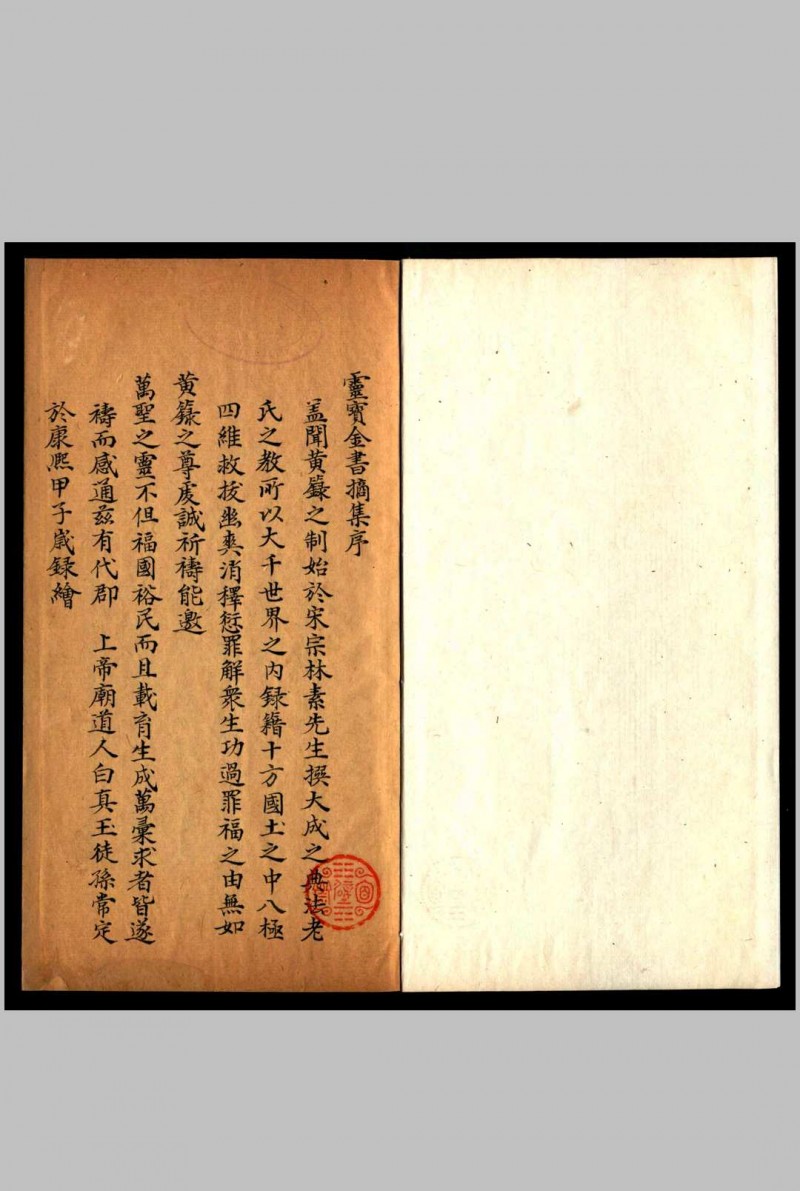 靈寶金書摘集序
盖聞黄籙之制始於宋宗林素先生撰大成之典法老
氏之教所以大千世界之内録籍十方國土之中八極
四維救拔幽爽消釋愆罪解衆生功過罪福之由無如
黄籙之尊虔誠祈禱能邀
萬聖之靈不但福國裕民而且載育生成萬彙求者皆遂
禱而感通兹有代郡 上帝廟道人白真玉徒孫常定
於康熈甲子歳録繪